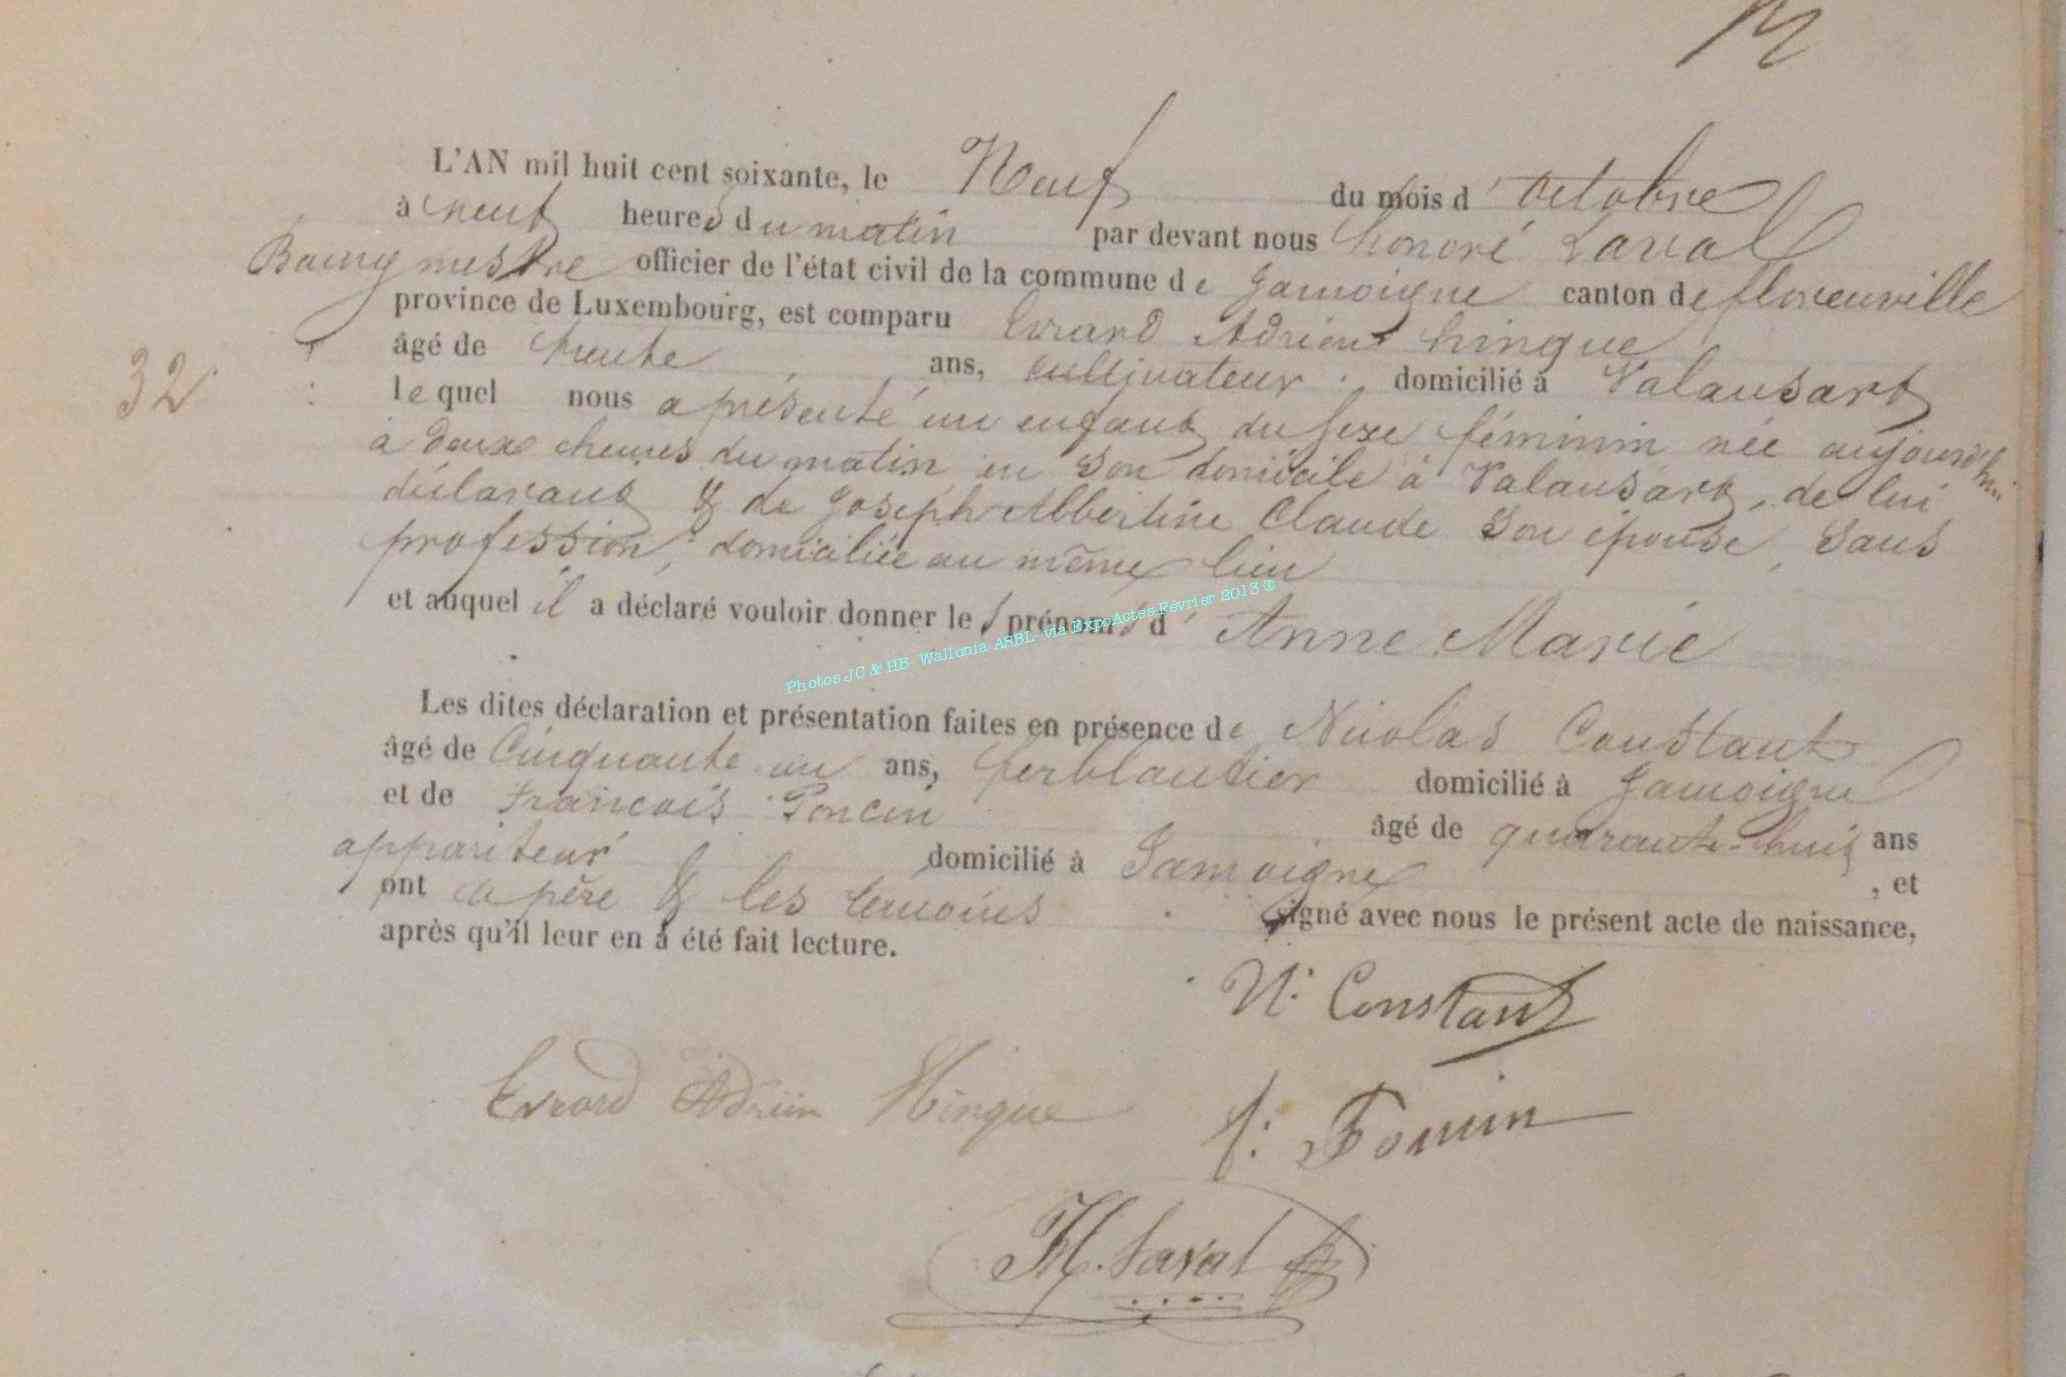 L'AN mil huit cent soixante, le Neuf du mois d'octobre
à neuf heures du matin par devant nous honoré Laval
Bourgmestre officier de l'état civil de la commune de Jamoigne canton de florenville
province de Luxembourg, est comparu Evrard Adrien hinque
âgé de trente ans, cultivateur domicilié à Valansart
32
lequel nous a présenté un enfant du sexe féminin née aujourd'hui
à deux heures du matin en son domicile à Valansart, de lui
déclarant & de Joseph Albertine Claude son épouse, sans
profession, domiciliée au même lieu
et auquel il a déclaré vouloir donner les prénoms d'Anne Marie
Photos JC & HB- Wallonia ASBL- via ExpoActes Février 2013 ©
Les dites déclaration et présentation faites en présence de Nicolas Constant
âgé de Cinquante un ans, ferblantier domicilié à Jamoigne
et de François Poncin âgé de quarante-huit ans
appariteur domicilié à Jamoigne , et
ont le père & les témoins signé avec nous le présent acte de naissance,
après qu'il leur en a été fait lecture.
N. Constant
Evrard Adrien Hinque
f: Poncin
H. Laval